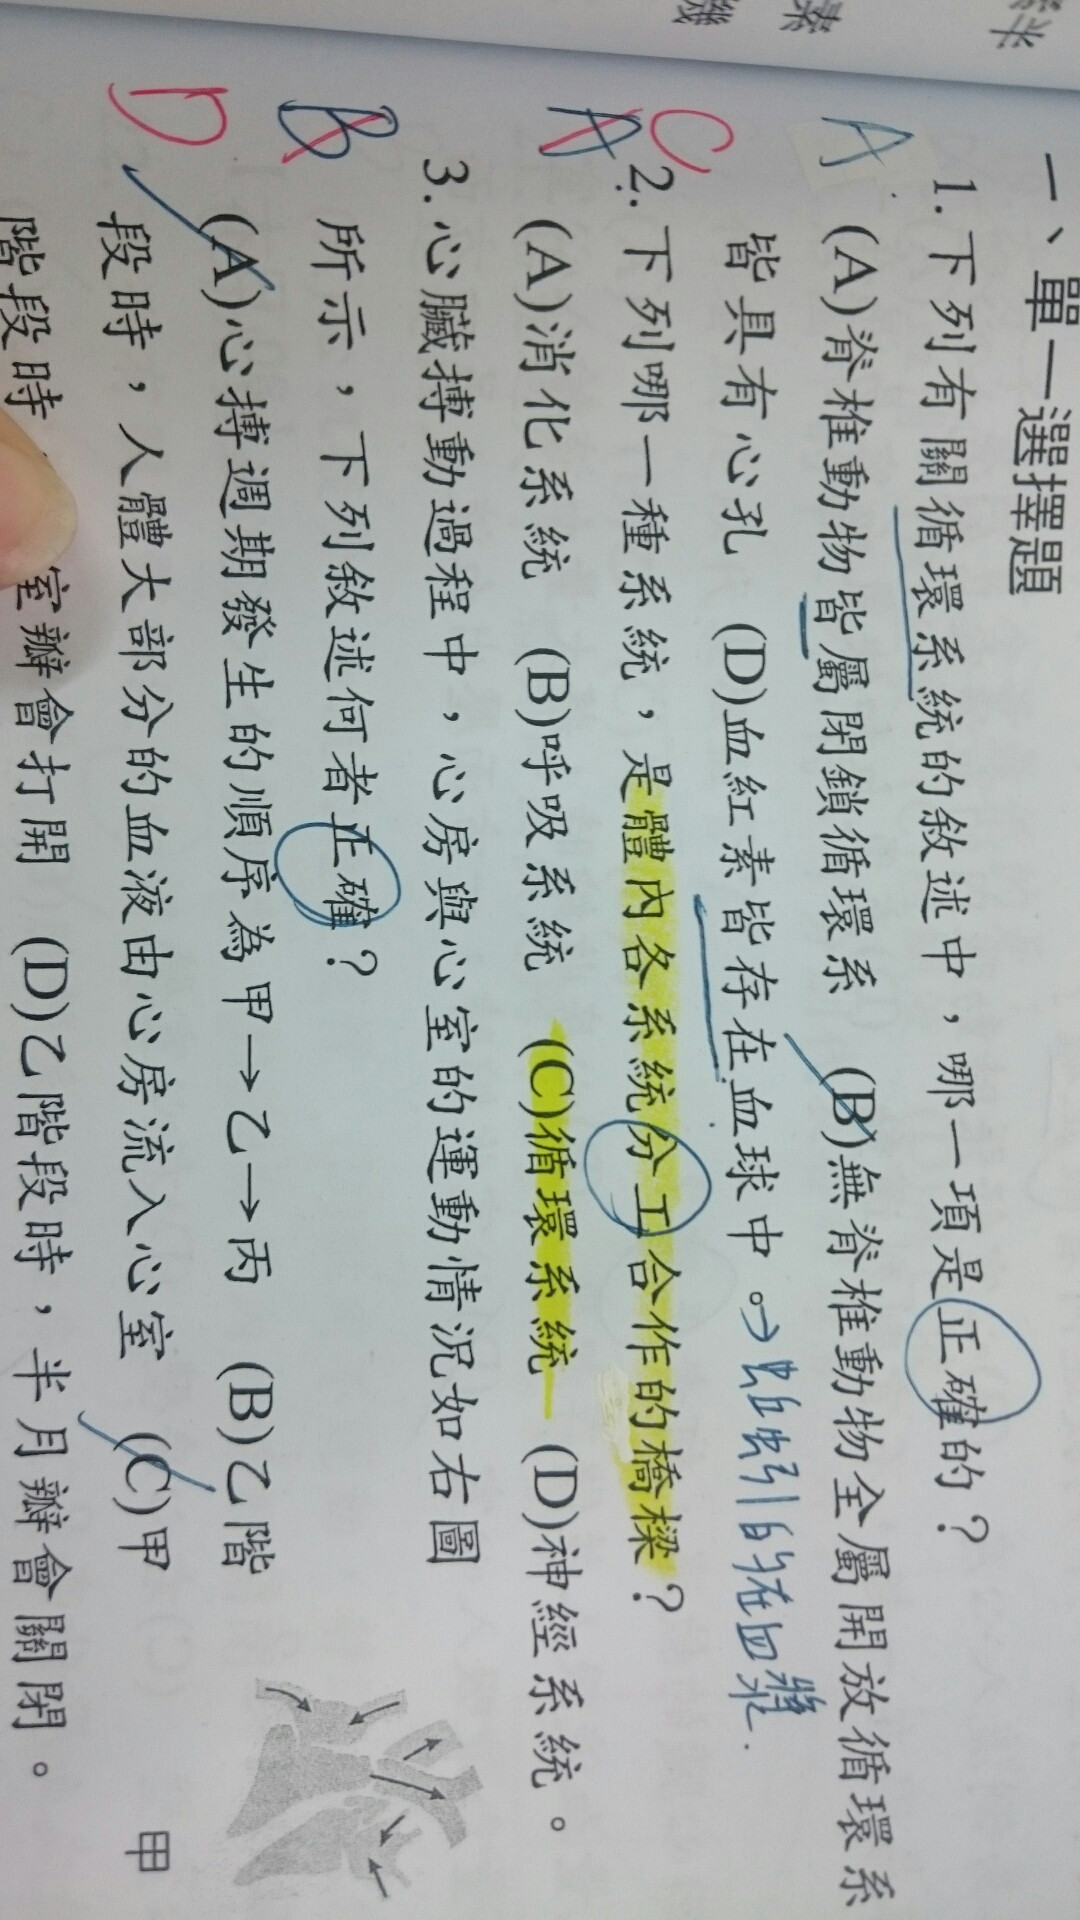 半
素
機
一、單一選擇題
A 1.下列有關循環系統的敘述中，哪一項是正確的？
(A)脊椎動物皆屬閉鎖循環系 (B)無脊椎動物全屬開放循環系
皆具有心孔 (D)血紅素皆存在血球中。→蚯蚓的在血漿.
C A 2.下列哪一種系統，是體內各系統分工合作的橋樑？
(A)消化系統 (B)呼吸系統 (C)循環系統 (D)神經系統。
3.心臟搏動過程中，心房與心室的運動情況如右圖
B 所示，下列敘述何者正確？
(A)心搏週期發生的順序為甲→乙→丙 (B)乙階
D 段時，人體大部分的血液由心房流入心室 (C)甲
階段時 室瓣會打開 (D)乙階段時，半月瓣會關閉。
甲